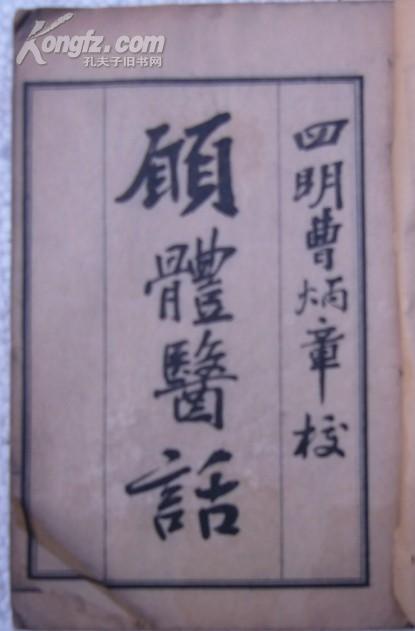 Kongfz.com
孔夫子旧书网
四明曹炳章校
願體醫話